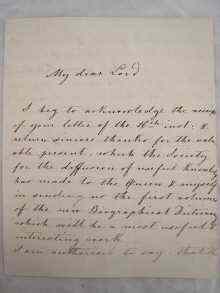 My dear Lord
I beg to acknowledge the
of your letter of the 16th inst: &
return sincere thanks for the
able present, which the Society
for the diffusion of useful
has made to the Queen & myself
in sending us the first volume
of the new Biographical
which will be a most useful &
interesting work
I am authorised to say that